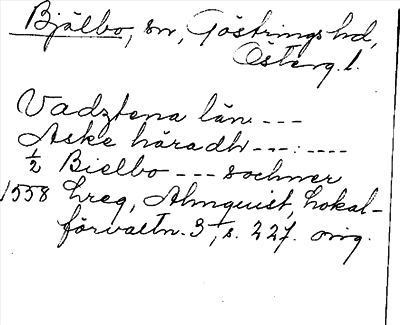 Bjälbo, sn, Göstrings hd,
Österg. l.
Vadztena län ---
Aske häradh --- ----
½ Bielbo --- sochner
1558 hreg, Almquist, Lokal-
förvaltn. 3, s. 227. orig.